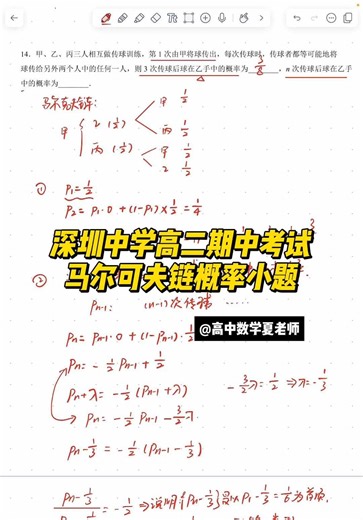 14. 甲、乙、丙三人相互做传球训练，第1次由甲将球传出，每次传球时，传球者都等可能地将
球传给另外两个人中的任何一人，则3次传球后球在乙手中的概率为 3/8 ，n次传球后球在乙手
中的概率为________.
马尔可夫链：
甲 { 乙 (1/2) < 甲 1/2
丙 1/2
丙 (1/2) < 甲 1/2
乙 1/2
① P₁ = 1/2
P₂ = P₁·0 + (1-P₁)×1/2 = 1/4
深圳中学高二期中考试
马尔可夫链概率小题
②
Pn-1: (n-1)次传球
@高中数学夏老师
Pn = Pn-1·0 + (1-Pn-1)·1/2
Pn = -1/2 Pn-1 + 1/2
Pn+λ = -1/2 (Pn-1+λ)
-3/2 λ = 1/2 ⇒ λ = -1/3
Pn = -1/2 Pn-1 - 3/2 λ
Pn - 1/3 = -1/2 (Pn-1 - 1/3)
Pn - 1/3 = -1/2 ⇒ 说明{Pn - 1/3}是以P₁ - 1/3 = 1/6为首项